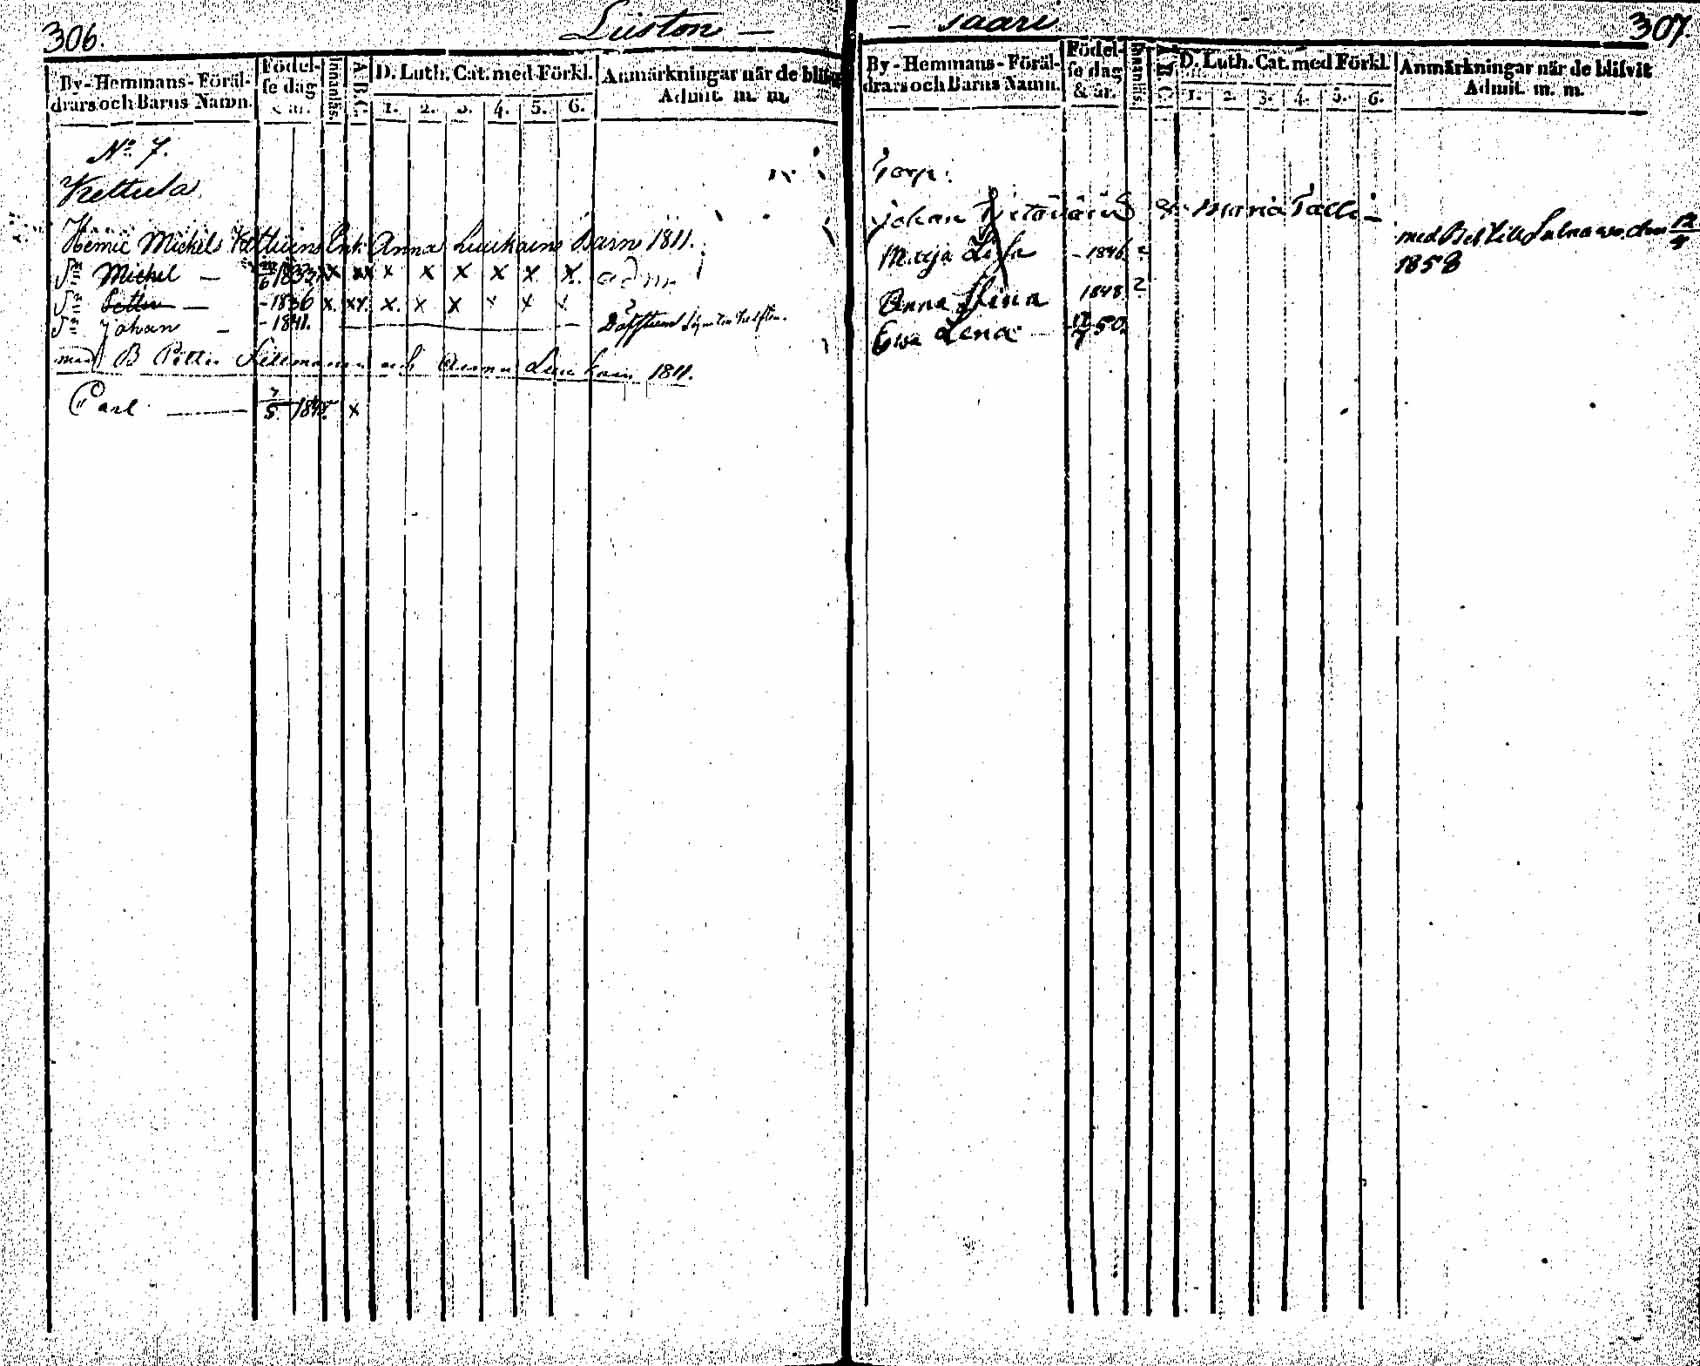 306.
Liiston –
By-Hemmans-Föräl-
drars och Barns Namn.
Födel-
se dag
& år.
Innanläs.
A.B.C.
D. Luth. Cat. med Förkl.
1. 2. 3. 4. 5. 6.
Anmärkningar när de blifvit
Admit. m. m.
No 7.
Kettula
Michels Enk. Anna Luukains Barn 1811.
Sn Michel – 1833 x x x x x x x x x adm
Sn Petter – - 1836 x xx. x. x x x x x
Sn Johan – - 1841.
med B Petter och Anna Luukain 1811.
Carl. 7/5 1848. x
– saari
307
By-Hemmans-Föräl-
drars och Barns Namn.
Födel-
se dag
& år.
Innanläs.
A.B.C.
D. Luth. Cat. med Förkl.
1. 2. 3. 4. 5. 6.
Anmärkningar när de blifvit
Admit. m. m.
Torp:
Johan & Maria
Maija Lisa - 1846 ?
med Bet till den 12/4
1858
Anna Stina 1848 ?
Ewa Lena 50.